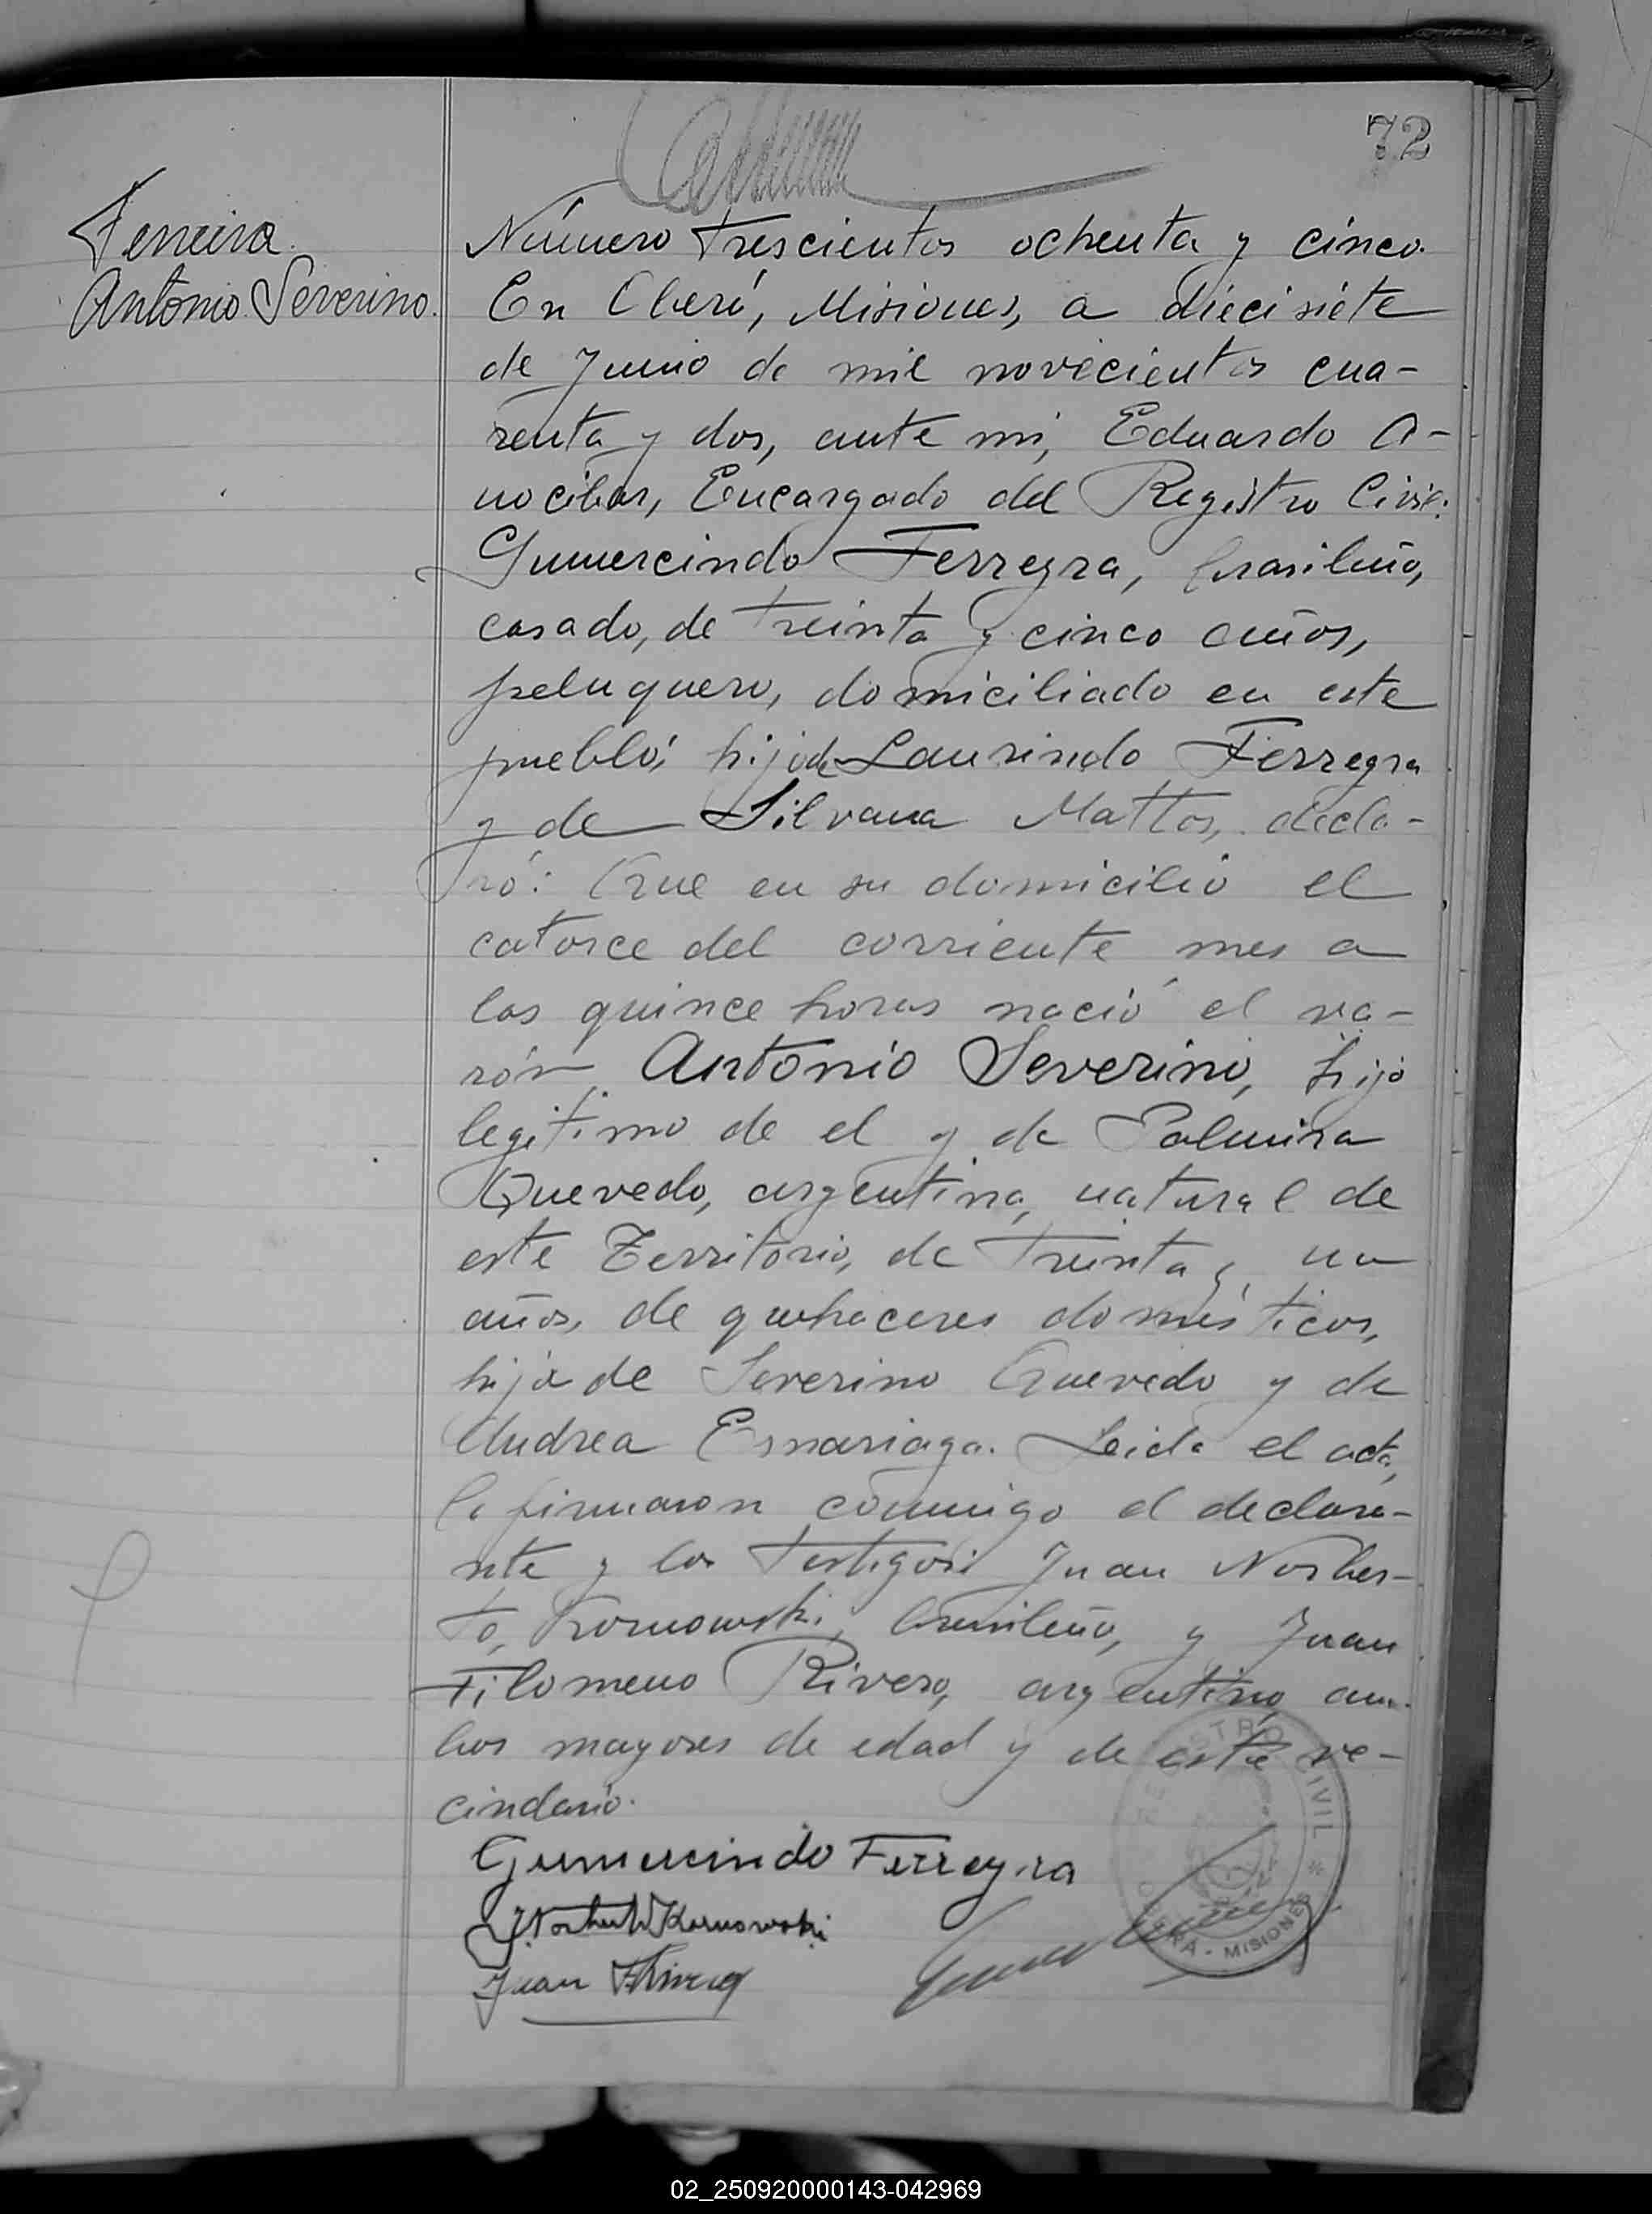 72
Ferreira
Antonio Severino.
Número trescientos ochenta y cinco.
En Oberá, Misiones, a diecisiete
de Junio de mil novecientos cua-
renta y dos, ante mi, Eduardo A-
nocibar, Encargado del Registro Civil:
Gumercindo Ferreyra, brasileño,
casado, de treinta y cinco años,
peluquero, domiciliado en este
pueblo, hijo de Laurindo Ferreyra
y de Silvana Mattos, decla-
ró: Que en su domicilio el
catorce del corriente mes a
las quince horas nació el va-
rón Antonio Severino, hijo
legitimo de el y de Palmira
Quevedo, argentina, natural de
este Territorio, de treinta y un
años, de quehaceres domésticos,
hija de Severino Quevedo y de
Andrea Esnariaga. Leida el acta,
la firmaron conmigo el declara-
nte y los testigos: Juan Norber-
to Kornowski, brasileño, y Juan
Filomeno Rivero, argentino, am-
bos mayores de edad y de este ve-
cindario.
Gumercindo Ferreyra
J. Norberto Kornowski
Juan F. Rivero
REGISTRO CIVIL * OBERÁ - MISIONES
02_250920000143-042969